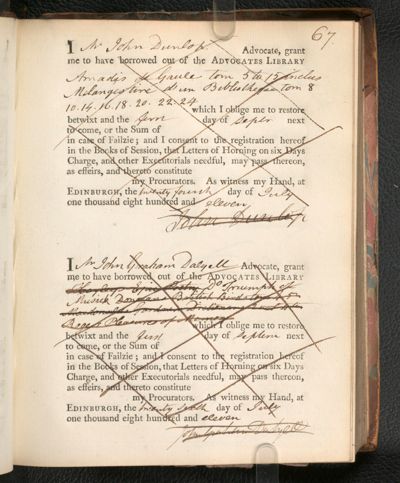 67.
I Mr John Dunlop Advocate, grant
me to have borrowed out of the ADVOCATES LIBRARY
Amadis de Gaule tom 5 to 15 inclus
Melanges tirés d'un Bibliotheque tom 8
10. 14. 16. 18. 20. 22. 24 which I oblige me to restore
betwixt and the first day of Septr next
to come, or the Sum of
in case of Failzie; and I consent to the registration hereof
in the Books of Session, that Letters of Horning on six Days
Charge, and other Executorials needful, may pass thereon,
as effeirs, and thereto constitute
my Procurators. As witness my Hand, at
EDINBURGH, the twenty fourth day of July
one thousand eight hundred and eleven
John Dunlop
I Mr John Graham Dalyell Advocate, grant
me to have borrowed out of the ADVOCATES LIBRARY
Do Triumphs of
Musick
Pleasures of which I oblige me to restore
betwixt and the first day of Septem next
to come, or the Sum of
in case of Failzie; and I consent to the registration hereof
in the Books of Session, that Letters of Horning on six Days
Charge, and other Executorials needful, may pass thereon,
as effeirs, and thereto constitute
my Procurators. As witness my Hand, at
EDINBURGH, the twenty sixth day of July
one thousand eight hundred and eleven